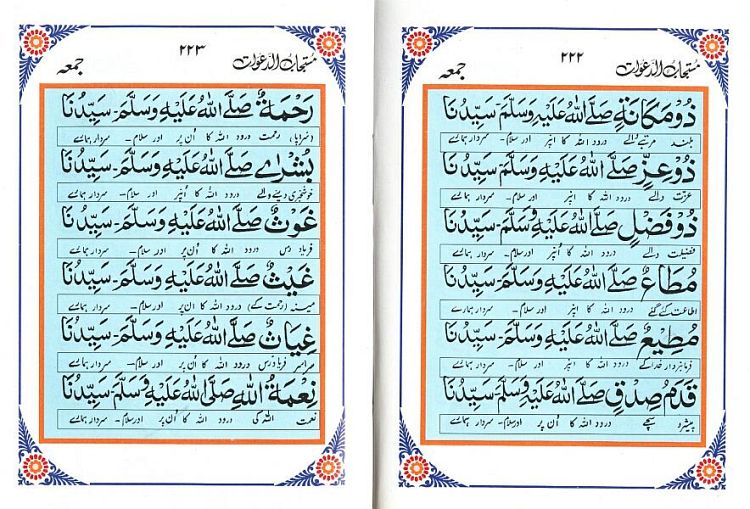 مستجاب الدعوات ٢٢٢ جمعه
ذُوْ مَكَانَةٍ صَلَّے اللّٰهُ عَلَيْهِ وَسَلَّمَ۔ سَيِّدُنَا
بلند مرتبے والے درود اللہ کا انپر اور سلام۔ سردار ہمارے
ذُوْ عِزٍّ صَلَّے اللّٰهُ عَلَيْهِ وَسَلَّمَ۔ سَيِّدُنَا
عزت والے درود اللہ کا انپر اور سلام۔ سردار ہمارے
ذُوْ فَضْلٍ صَلَّے اللّٰهُ عَلَيْهِ وَسَلَّمَ۔ سَيِّدُنَا
فضیلت والے درود اللہ کا اُنپر اور سلام۔ سردار ہمارے
مُطَاعٌ صَلَّے اللّٰهُ عَلَيْهِ وَسَلَّمَ۔ سَيِّدُنَا
اطاعت کئے گئے درود اللہ کا انپر اور سلام۔ سردار ہمارے
مُطِيْعٌ صَلَّے اللّٰهُ عَلَيْهِ وَسَلَّمَ۔ سَيِّدُنَا
فرمانبردار خدا کے درود اللہ کا انپر اور سلام۔ سردار ہمارے
قَدَمُ صِدْقٍ صَلَّے اللّٰهُ عَلَيْهِ وَسَلَّمَ۔ سَيِّدُنَا
پیشرو سچے درود اللہ کا اُن پر اور سلام۔ سردار ہمارے
مستجاب الدعوات ٢٢٣ جمعه
رَحْمَةٌ صَلَّے اللّٰهُ عَلَيْهِ وَسَلَّمَ۔ سَيِّدُنَا
(سراپا) رحمت درود اللہ کا اُن پر اور سلام۔ سردار ہمارے
بُشْرٰے صَلَّے اللّٰهُ عَلَيْهِ وَسَلَّمَ۔ سَيِّدُنَا
خوشخبری دینے والے درود اللہ کا اُنپر اور سلام۔ سردار ہمارے
غَوْثٌ صَلَّے اللّٰهُ عَلَيْهِ وَسَلَّمَ۔ سَيِّدُنَا
فریاد رس درود اللہ کا اُن پر اور سلام۔ سردار ہمارے
غَيْثٌ صَلَّے اللّٰهُ عَلَيْهِ وَسَلَّمَ۔ سَيِّدُنَا
مینہ (رحمت کے) درود اللہ کا اُن پر اور سلام۔ سردار ہمارے
غِيَاثٌ صَلَّے اللّٰهُ عَلَيْهِ وَسَلَّمَ۔ سَيِّدُنَا
سراسر فریاد رس درود اللہ کا اُن پر اور سلام۔ سردار ہمارے
نِعْمَةُ اللّٰهِ صَلَّى اللّٰهُ عَلَيْهِ وَسَلَّمَ۔ سَيِّدُنَا
نعمت اللہ کی درود اللہ کا اُن پر اور سلام۔ سردار ہمارے